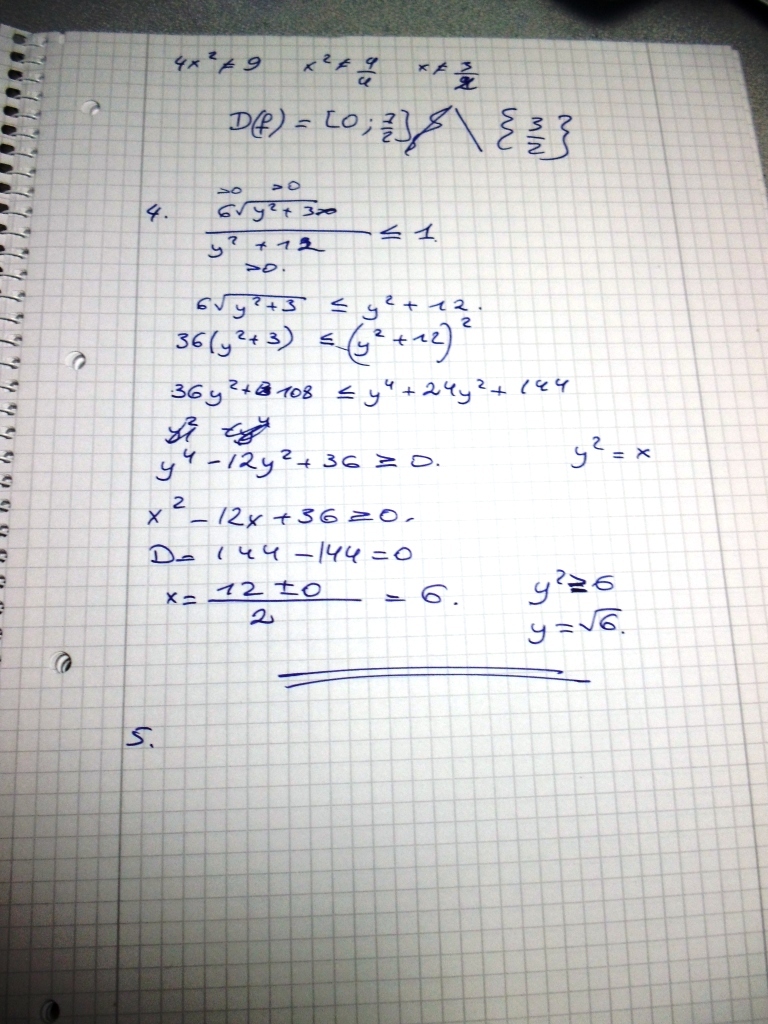 4x² ≠ 9 x² ≠ 9/4 x ≠ 3/2
D(f) = [0; 7/2] \ {3/2}
>0 >0
4. 6√(y² + 3)
y² + 12 ≤ 1
>0.
6√(y²+3) ≤ y² + 12.
36(y²+3) ≤ (y² + 12)²
36y² + 108 ≤ y⁴ + 24y² + 144
y⁴ - 12y² + 36 ≥ 0. y² = x
x² - 12x + 36 ≥ 0.
D = 144 - 144 = 0
x = (12 ± 0)/2 = 6. y² ≥ 6
y = √6.
5.